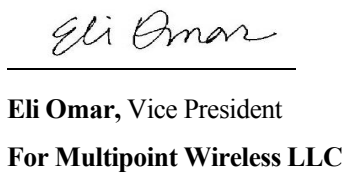 Eli Omar
Eli Omar, Vice President
For Multipoint Wireless LLC